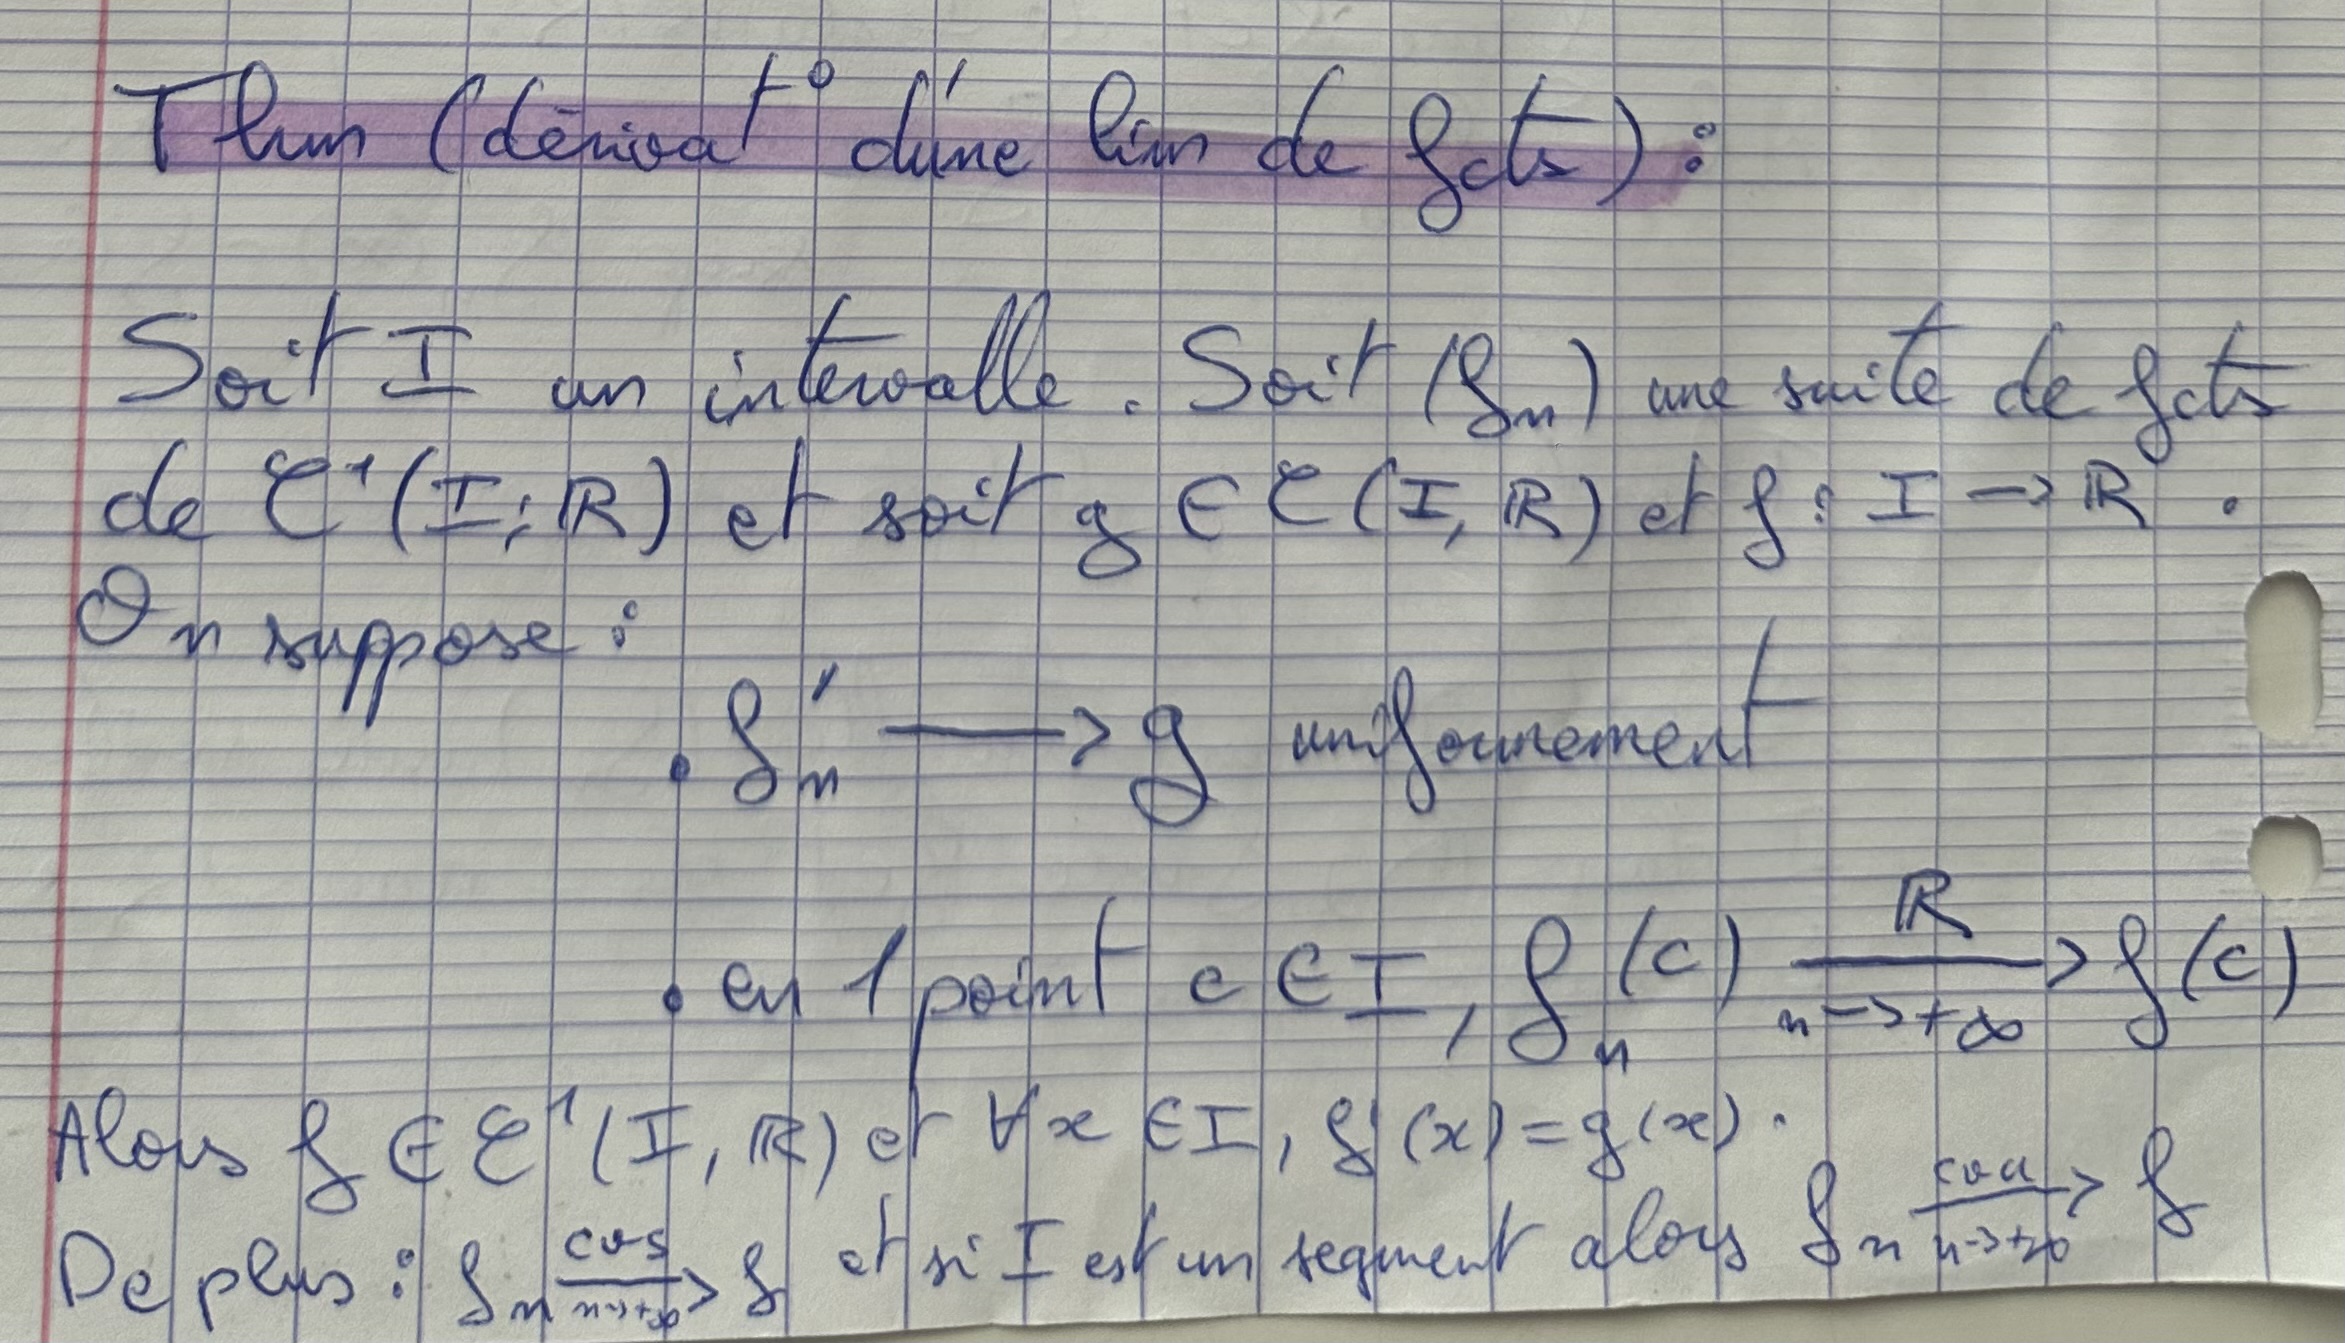 Thm (dérivat° d'une lim de fcts) :
Soit I un intervalle. Soit (fₙ) une suite de fcts
de C¹(I; ℝ) et soit g ∈ C(I, ℝ) et f : I → ℝ .
On suppose :
• fₙ' ⟶ g uniformement
• en 1 point c ∈ I, fₙ(c) ⟶ f(c) ℝ n→+∞
Alors f ∈ C¹(I, ℝ) et ∀x ∈ I, f'(x) = g(x).
De plus : fₙ ⟶ f cvs n→+∞ et si I est un segment alors fₙ ⟶ f cvu n→+∞